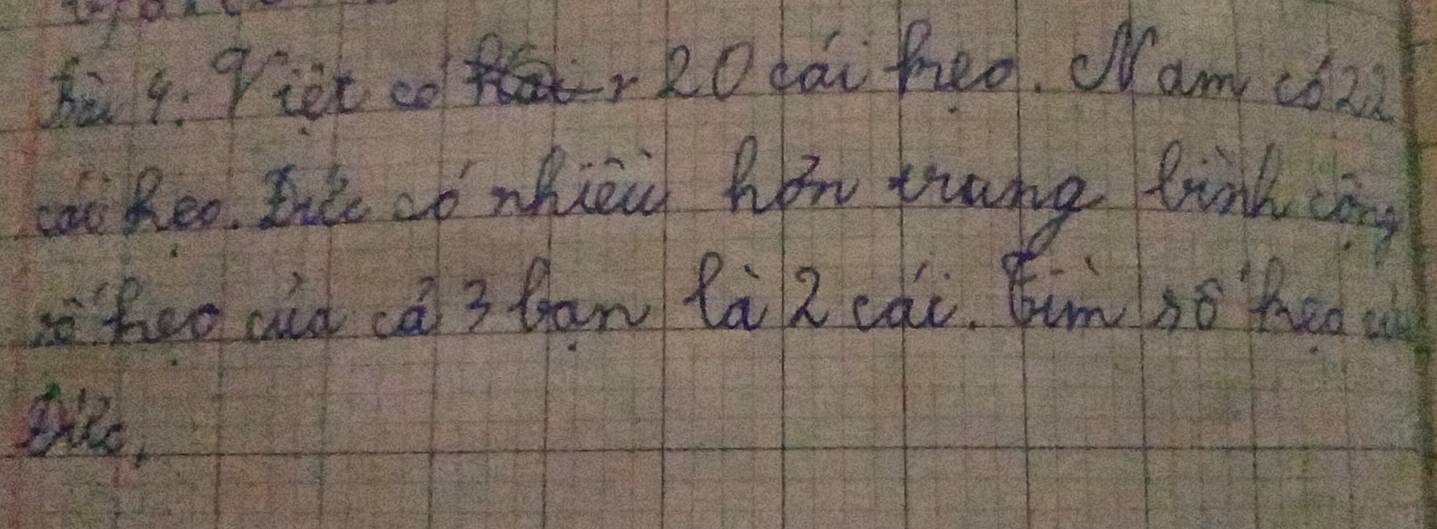 Bài 4. Việt có 20 cái kẹo. Nam có 22
cái kẹo. Đức có nhiều hơn trung bình cộng
số kẹo của cả 3 bạn là 2 cái. Tìm số kẹo của
Đức.